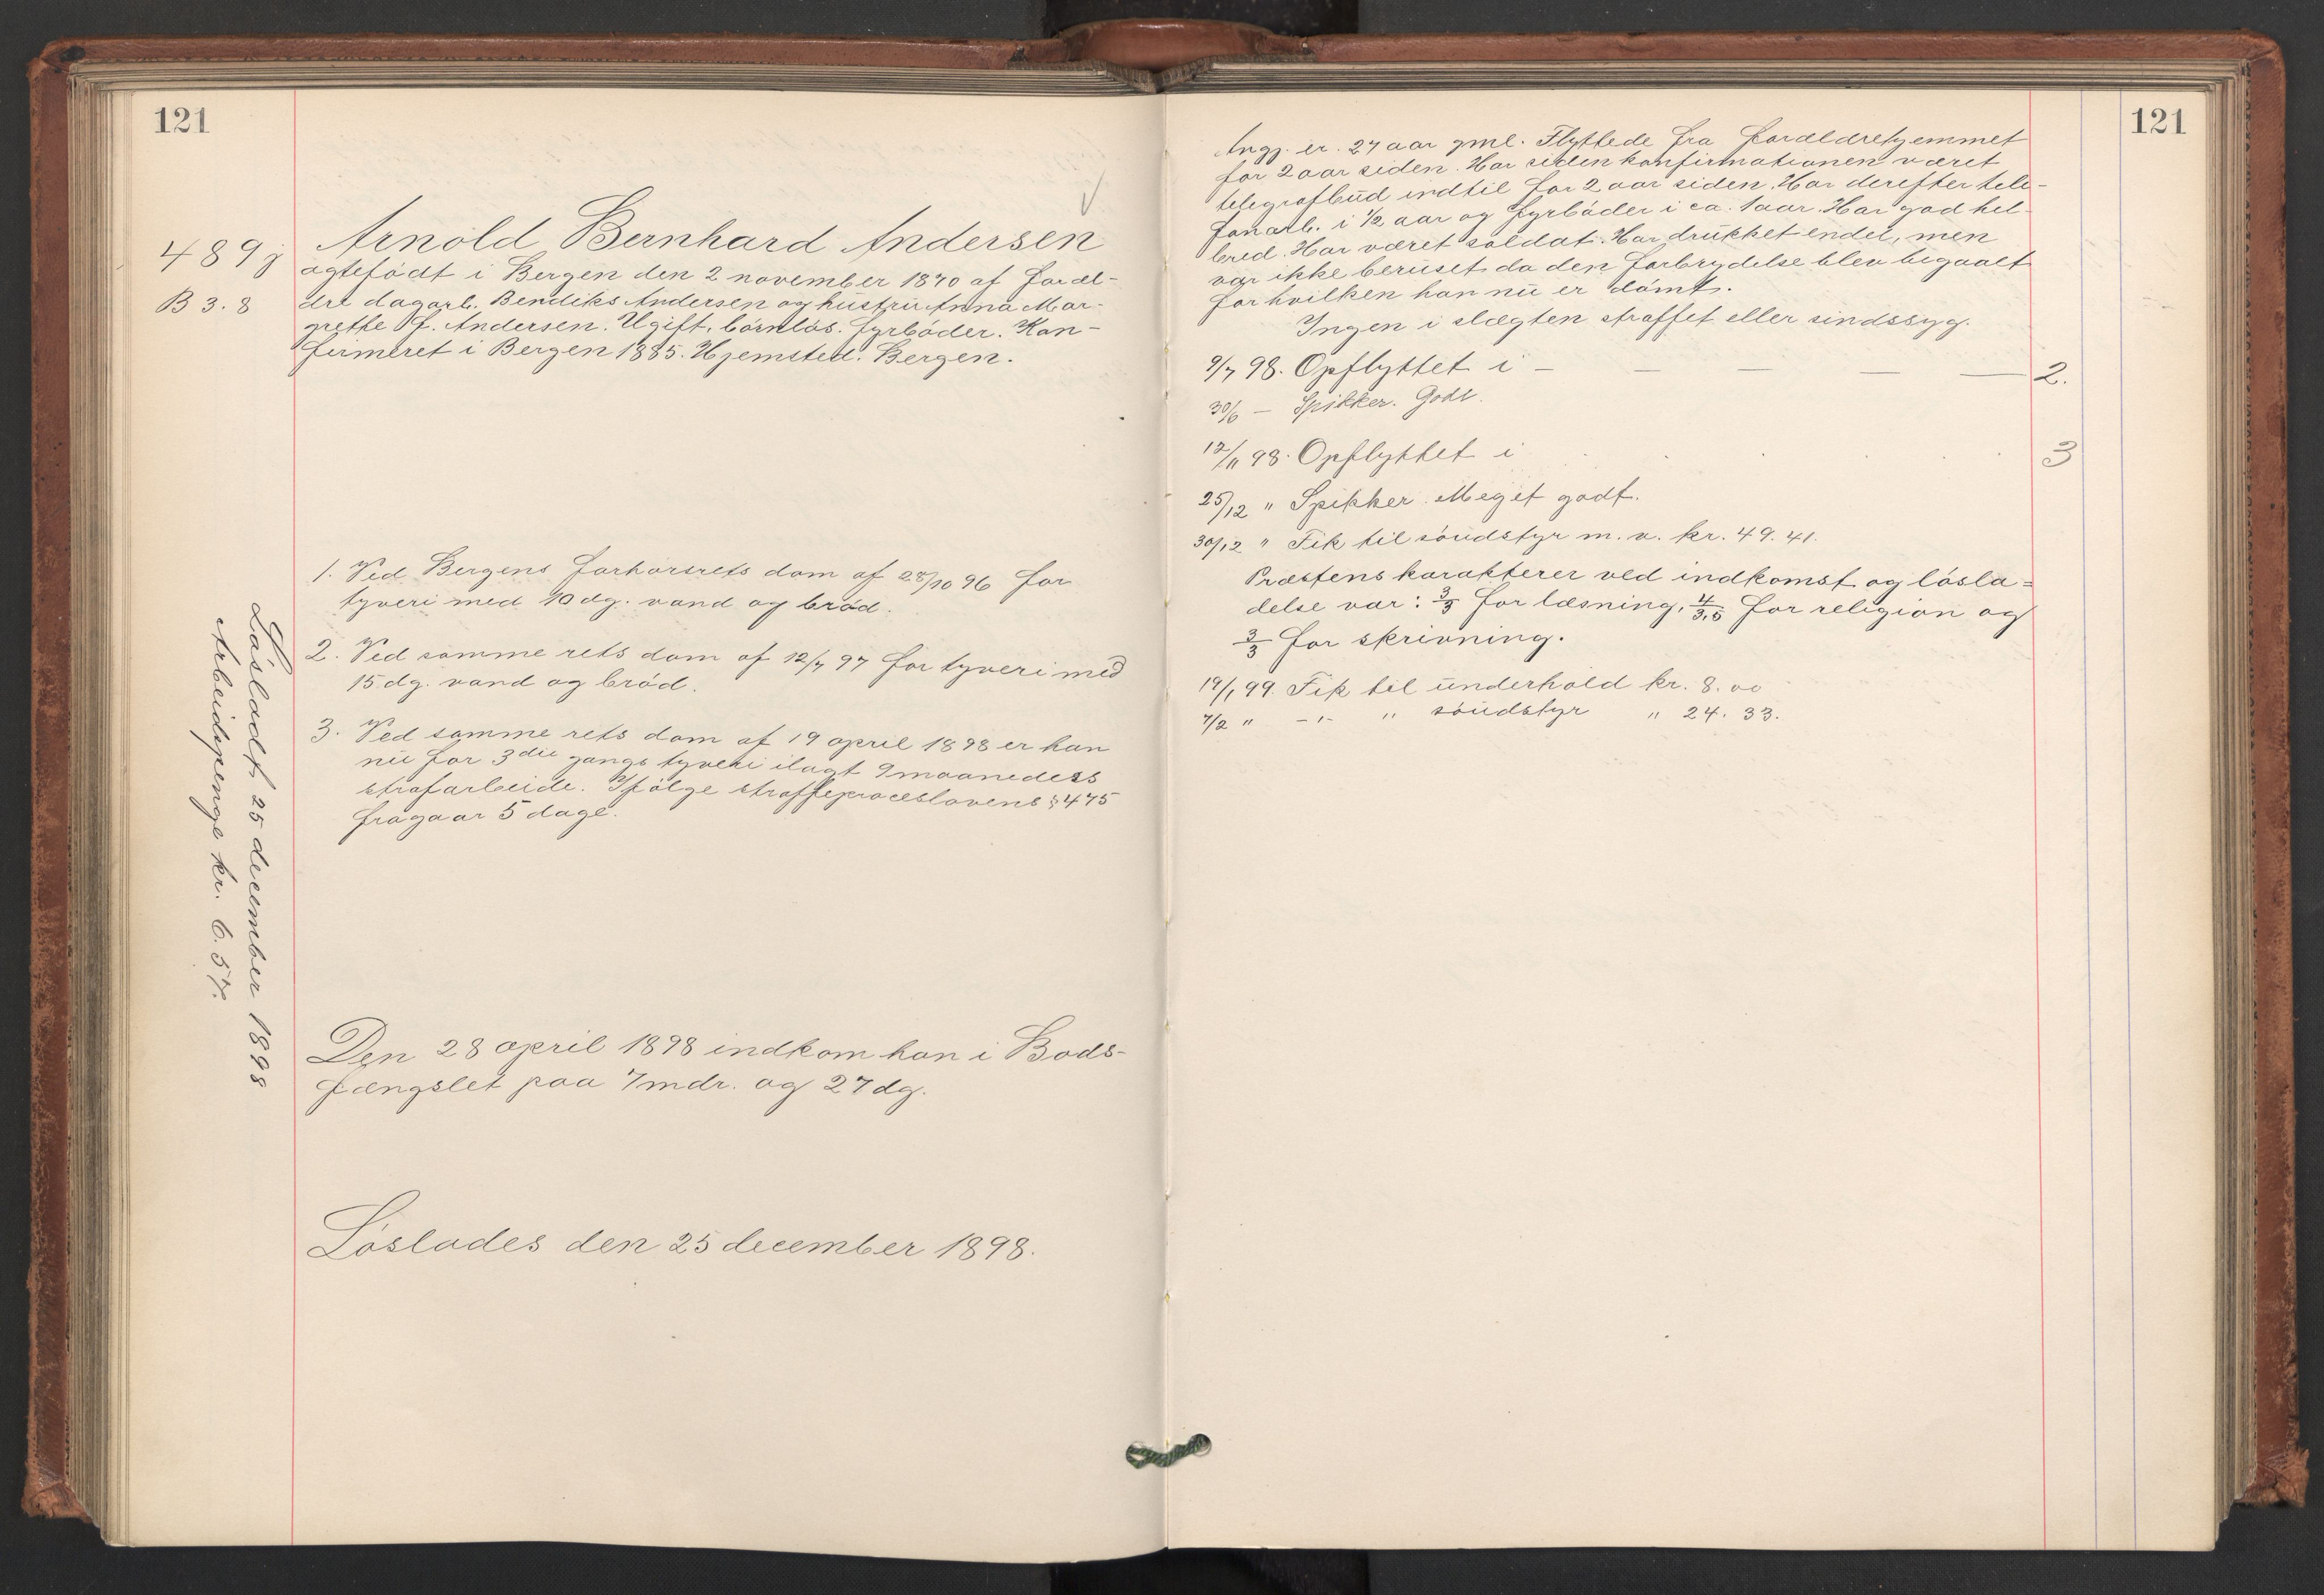 121
Arnold Bernhard Andersen
489j
ægtefödt i Bergen den 2 november 1870 af foræl-
B 3. 8
dre dagarb. Bendiks Andersen og hustru Anna Mar-
grethe f. Andersen. Ugift, börnlös. fyrböder. Kon-
firmeret i Bergen 1885. Hjemsted: Bergen.
1. Ved Bergens forhörsrets dom af 28/10 96 for
tyveri med 10 dg. vand og bröd.
2. Ved samme rets dom af 12/7 97 for tyveri med
15 dg. vand og bröd.
3. Ved samme rets dom af 19 april 1898 er han
nu for 3die gangs tyveri ilagt 9 maaneders
strafarbeide. Ifölge straffeproceslovens § 475
fragaar 5 dage.
Lösladt 25 december 1898
Arbeidspenge kr. 6.57.
Den 28 april 1898 indkom han i Bods-
fængslet paa 7 mdr. og 27 dg.
Löslades den 25 december 1898.
121
Angj. er 27 aar gml. Flyttede fra forældrehjemmet
for 2 aar siden. Har siden konfirmationen været
telegrafbud indtil for 2 aar siden. Har derefter tele-
fonarb. i 1/2 aar og fyrböder i ca. 1 aar. Har god hel-
bred. Har været soldat. Har drukket endel, men
var ikke beruset da den forbrydelse blev begaaet
for hvilken han nu er dömt.
Ingen i slægten straffet eller sindssyg.
9/7 98. Opflyttet i — — — — — 2.
30/6 — Spikker. Godt.
12/11 98. Opflyttet i 3
25/12 " Spikker. Meget godt.
30/12 " Fik til söudstyr m. v. kr. 49.41.
Præstens karakterer ved indkomst og lösla=
delse var: 3/3 for læsning, 4/3,5 for religion og
3/3 for skrivning.
19/1 99. Fik til underhold kr. 8.00
7/2 " -"- " söudstyr " 24.33.